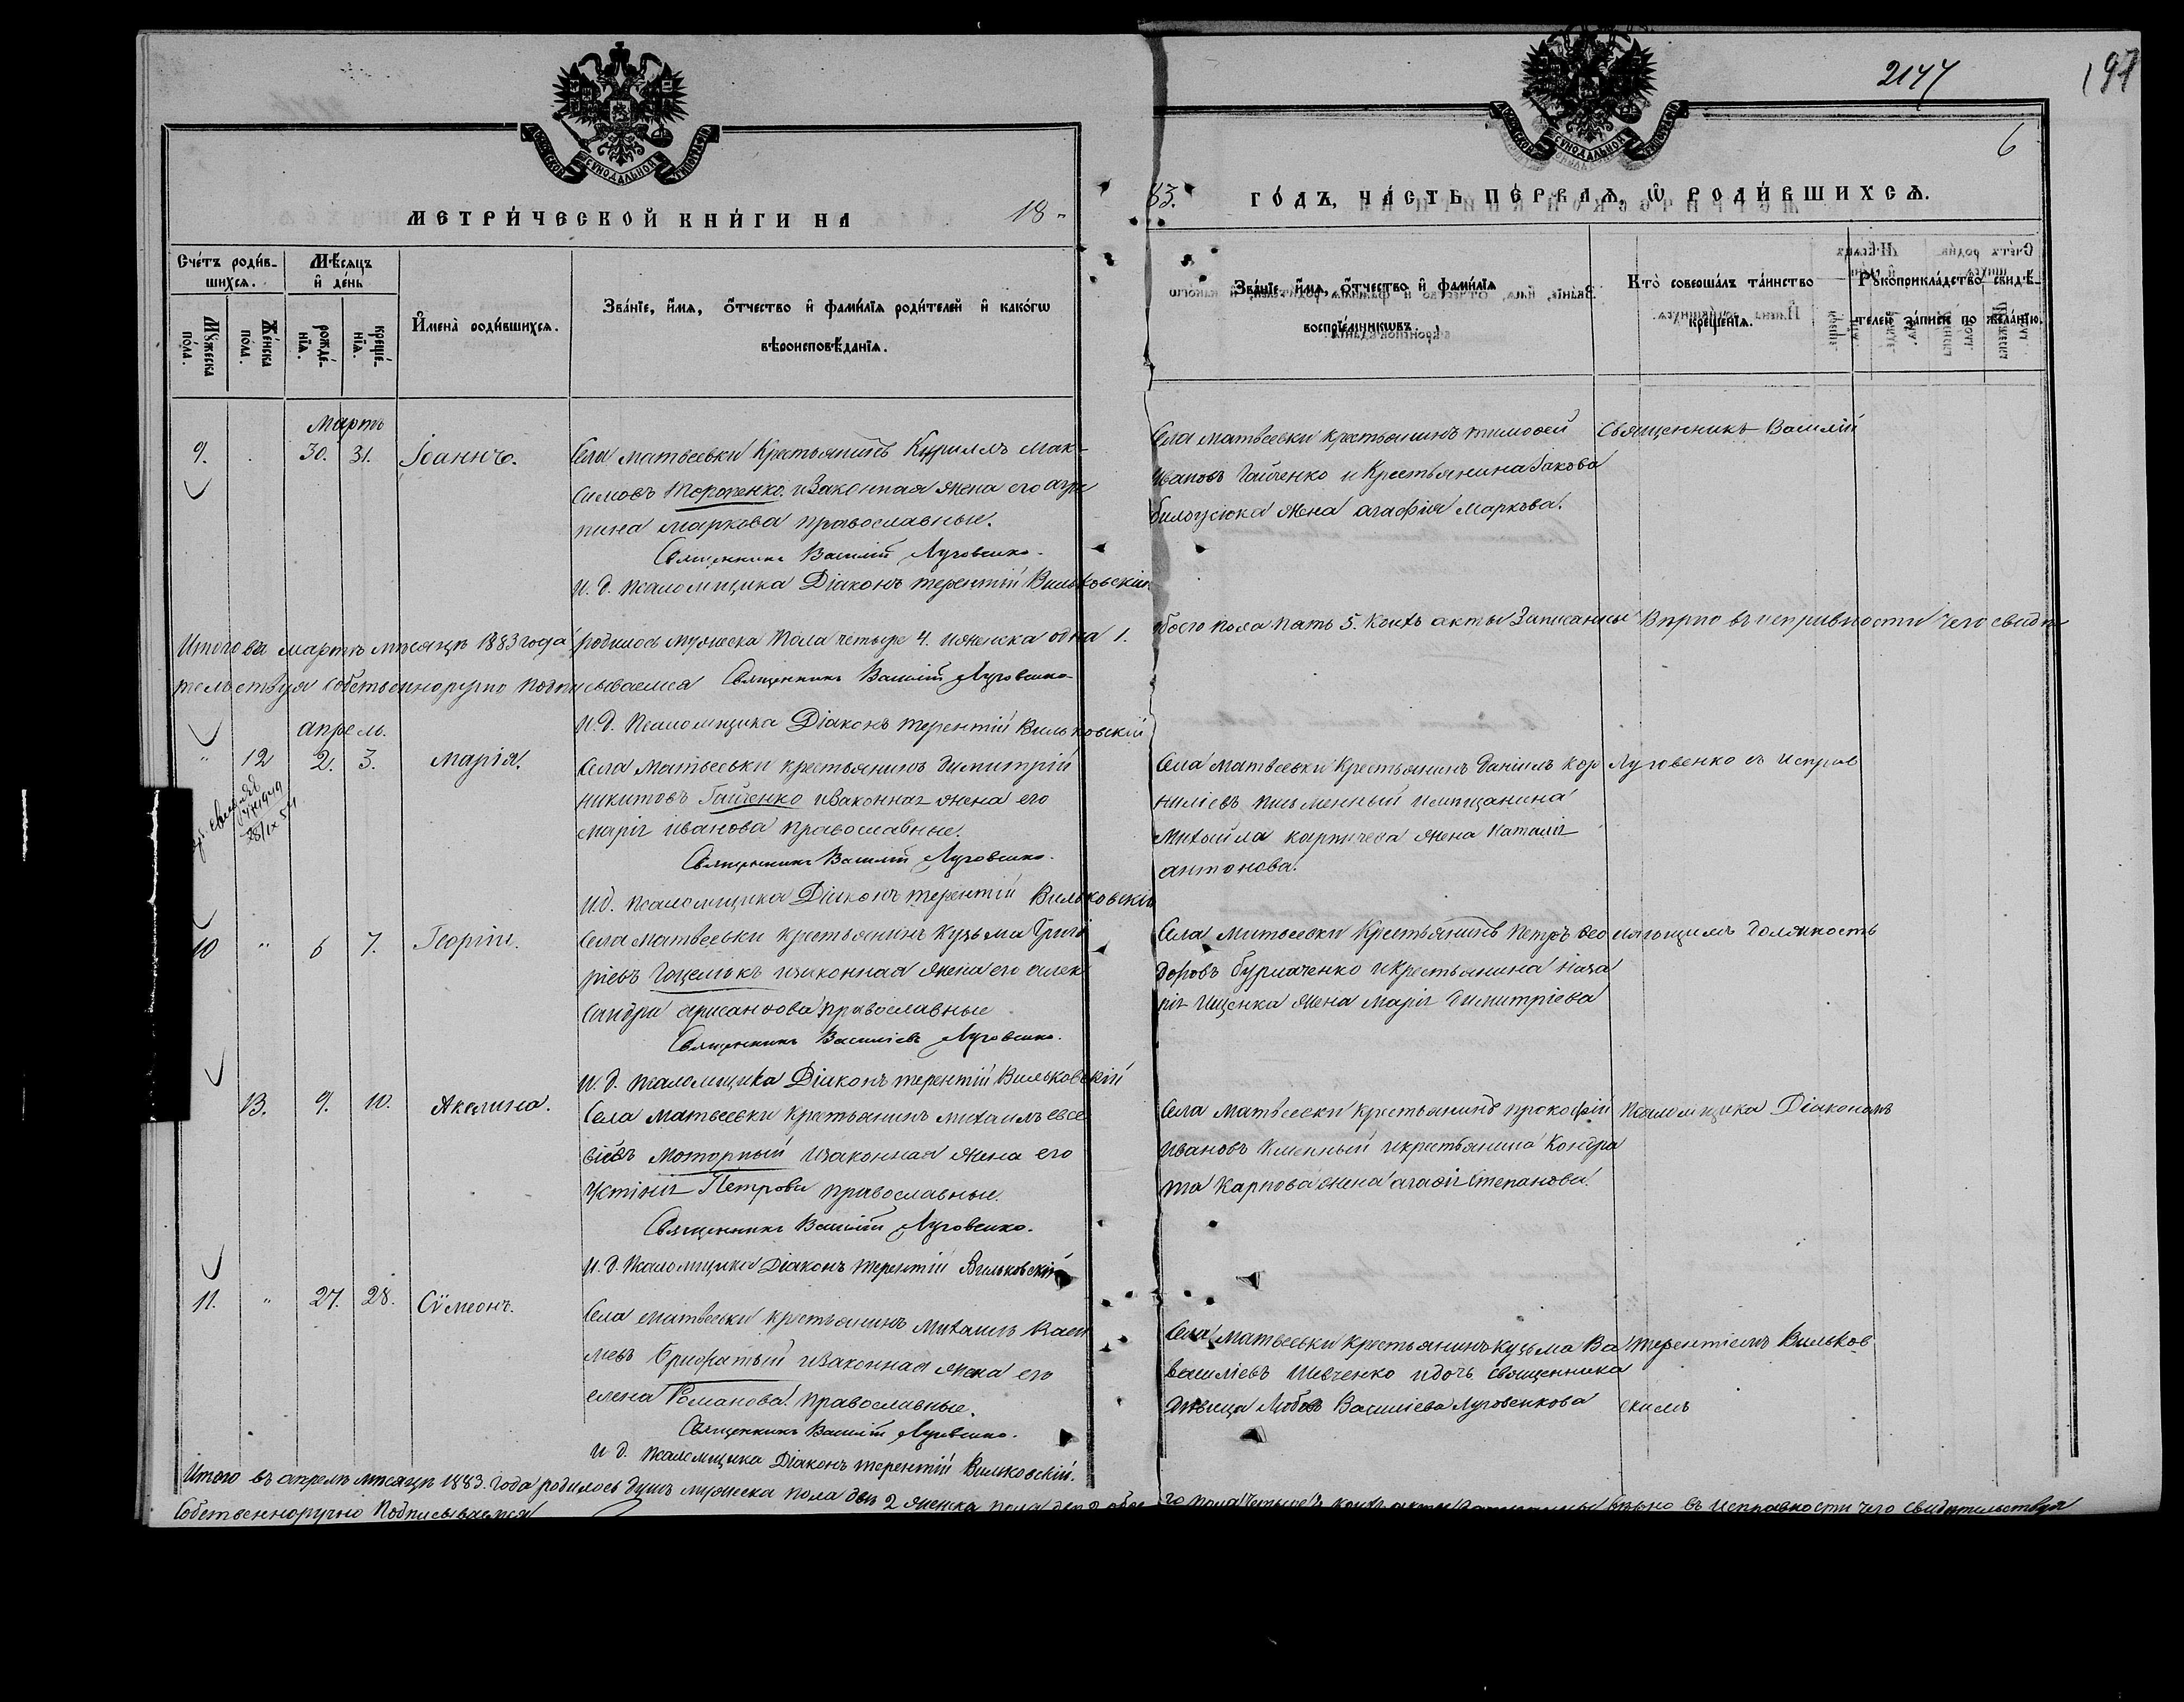 2144
197
6
МОСКОВСКОЙ СѴНОДАЛЬНОЙ ТИПОГРАФІИ
МЕТРИ́ЧЕСКОЙ КНИ́ГИ НА 18
83. ГО́ДЪ, ЧА́СТЬ ПЕ́РВАѦ, Ѡ҆ РОДИ́ВШИХСѦ.
Сче́тъ роди́в-
шихсѧ.
Мꙋ́жеска по́ла.
Же́нска по́ла.
Мѣ́сѧцъ и҆ де́нь
рожде́-
нїѧ.
креще́-
нїѧ.
И҆мена̀ роди́вшихсѧ.
Зва́нїе, и҆́мѧ, ѻ҆́тчество и҆ фами́лїѧ роди́телей и҆ како́гѡ
вѣроисповѣ́данїѧ.
Зва́нїе, и҆́мѧ, ѻ҆́тчество и҆ фами́лїѧ
воспрїе́мникѡвъ.
Кто̀ соверша́лъ та́инство
креще́нїѧ.
Рꙋкоприкла́дство свидѣ́-
телей за́писи по жела́нїю.
Мартъ
9. 30. 31. Іоаннъ.
Села Матвеевки Крестьянинъ Кириллъ Мак-
симовъ Торопенко и законная жена его Агри
пина Маркова православные.
Священникъ Василій Луговенко.
И. д. Псаломщика Діаконъ Терентій Вильковскій
Села Матвеевки крестьянинъ Тимофей
Ивановъ Гайченко и Крестьянина Іакова
билоусюка жена Агафія Маркова.
Священникъ Василій
Итого въ мартѣ мѣсяцѣ 1883 года родилось мужеска пола четыре 4. и женска одна 1. обоего пола пять 5. коихъ акты записаны вѣрно въ исправности чего свидѣ
тельствуя собственноручно подписываемся Священникъ Василій Луговенко
И. д. Псаломщика Діаконъ Терентій Вильковскій
апрель.
" 12 2. 3. Марія.
Села Матвеевки крестьянинъ Димитрій
Никитовъ Гайченко и законная жена его
Марія Иванова православные.
Священникъ Василій Луговенко.
И. д. Псаломщика Діаконъ Терентій Вильковскій
28/IX 54
Села Матвеевки Крестьянинъ Даніилъ Кор
ниліевъ Письменный и мѣщанина
Михаила Карпичева жена Наталія
Антонова.
Луговенко съ исправ
10 " 6 7. Георгій.
Села Матвеевки крестьянинъ Кузьма Григо
ріевъ Гоцелюкъ и законная жена его Алек
сандра православные
Священникъ Василіевъ Луговенко.
И. д. Псаломщика Діаконъ Терентій Вильковскій
Села Матвеевки Крестьянинъ Петръ Ѳео
доровъ Бурлаченко и крестьянина Наза
рія Ищенка жена Марія Димитріева
ляющимъ должность
13. 9. 10. Акелина.
Села Матвеевки крестьянинъ Михаилъ Евсе
віевъ Моторный и законная жена его
Устинія Петрова православные.
Священникъ Василій Луговенко.
И. д. Псаломщика Діаконъ Терентій Вильковскій
Села Матвеевки крестьянинъ Прокофій
Ивановъ и крестьянина Кондра
та Карпова жена Агафія Степанова.
Псаломщика Діакономъ
11. " 27. 28. Сѷмеонъ.
Села Матвеевки крестьянинъ Михаилъ Васи
левъ и законная жена его
Елена Романова православные.
Священникъ Василій Луговенко.
И. д. Псаломщика Діаконъ Терентій Вильковскій.
Села Матвеевки крестьянинъ Кузьма Ва
василіевъ Шевченко и дочь священника
дѣвица Любовь Василіева Луговенкова
Терентіемъ Вильков
скимъ
Итого въ апрелѣ мѣсяцѣ 1883. года родилось душъ мужеска пола два 2 женска пола двѣ 2 обоего пола четыре 4 коихъ акты записаны вѣрно въ исправности чего свидѣтельствуя
Собственноручно Подписываемся